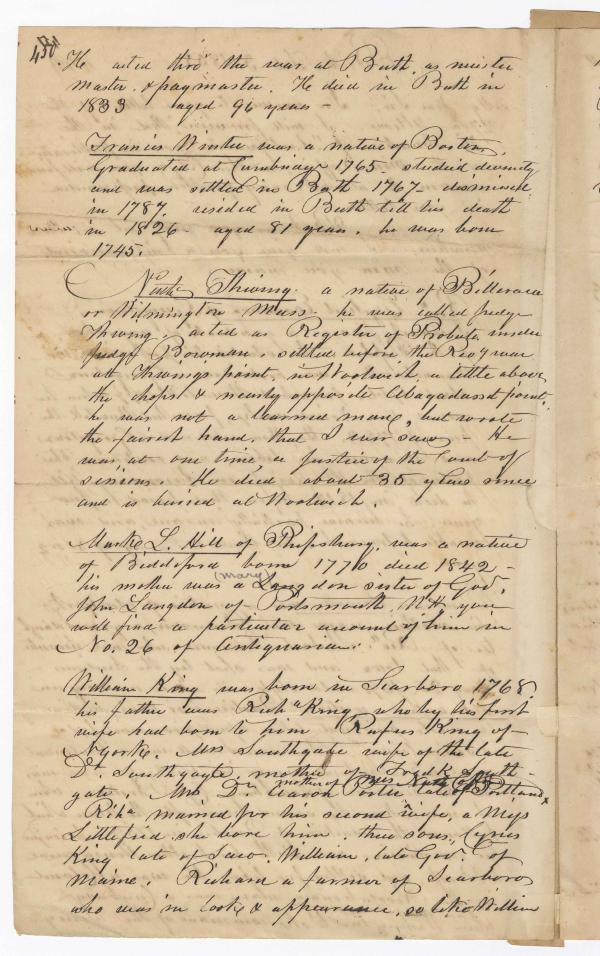 He acted thro the war at Bath, as muster
master & paymaster. He died in Bath in
1833 aged 96 years –
Francis Winter was a native of Boston.
Graduated at Cambridge 1765. studied divinity
and was settled in Bath 1767 dismissed
in 1787. resided in Bath till his death
in 1826 – aged 81 years. he was born
1745.
Thwing. a native of Billeraca
or Wilmington Mass. he was called judge
Thwing, acted as Register of Probate under
judge Bowman. settled before the Rev'y war
at Thwings point, in Woolwich a little above
the chops & nearly opposite Abagadasset point.
he was not a learned man, but wrote
the fairest hand, that I ever saw – He
was at one time a justice of the Court of
sessions. He died about 35 years since
and is buried at Woolwich.
Mark L. Hill of Phipsburg, was a native
of Biddeford born 1770 died 1842 –
his mother was a (Mary) Langdon sister of Gov.
John Langdon of Portsmouth, N.H. you
will find a particular account of him in
No. 26 of Antiquarian.
William King was born in Scarboro 1768.
his father was Richd King who by his first
wife had born to him Rufus King of
N yorke. Mrs Southgate wife of the late
Dr. Southgate, mother of Fredk South-
gate. Mrs Dr. Aaron Porter late of Portland x
mother of Mrs
Richd married for his second wife, a Miss
Littlefield. she bore him, three sons, Cyrus
King late of Saco, William, late Gov. of
Maine. Richard a farmer of Scarboro
who was in looks & appearance, so like William